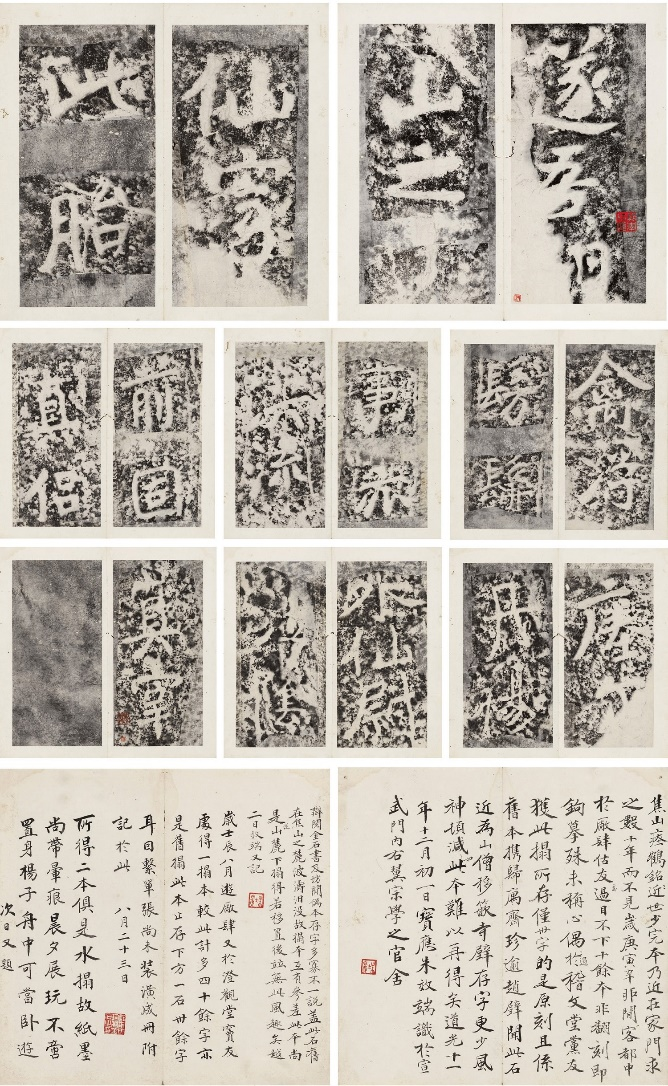 遂吾門
山之下
仙家
此胎
禽
事篆
前固
真侶
丹楊
外仙尉
江陰
真宰
焦山瘞鶴銘近世少完本乃近在家門求
之數十年而不見歲庚寅辛非閑客都中
於廠肆估友過目不下十餘本非翻刻即
鉤摹殊未稱心偶於稽文堂黨友
獲此搨所存僅卅字的是原刻且係
舊本攜歸寓齋珍逾趙璧聞此石
近為山僧移嵌奇壁存字更少風
神頓減此本難以再得矣道光十一
年十二月初一日寶應朱啟端識於宣
武門內右翼宗學之官舍
閱金石書及搨聞偽本存字多寡不一說蓋此石舊
在焦山之麓波濤汨沒故搨本互有參差此本尚
是山麓下搨得若移置後並無此風趣矣越
二日啟端又記
歲壬辰八月遊廠肆又於澄觀堂賓友
處得一搨本較此計多四十餘字亦
是舊搨此本止存下方一石卅餘字
耳因繫單張尚未裝潢成冊附
記於此 八月二十三日
所得二本俱是水搨故紙墨
尚帶暈痕晨夕展玩不啻
置身楊子舟中可當卧遊
次日又題